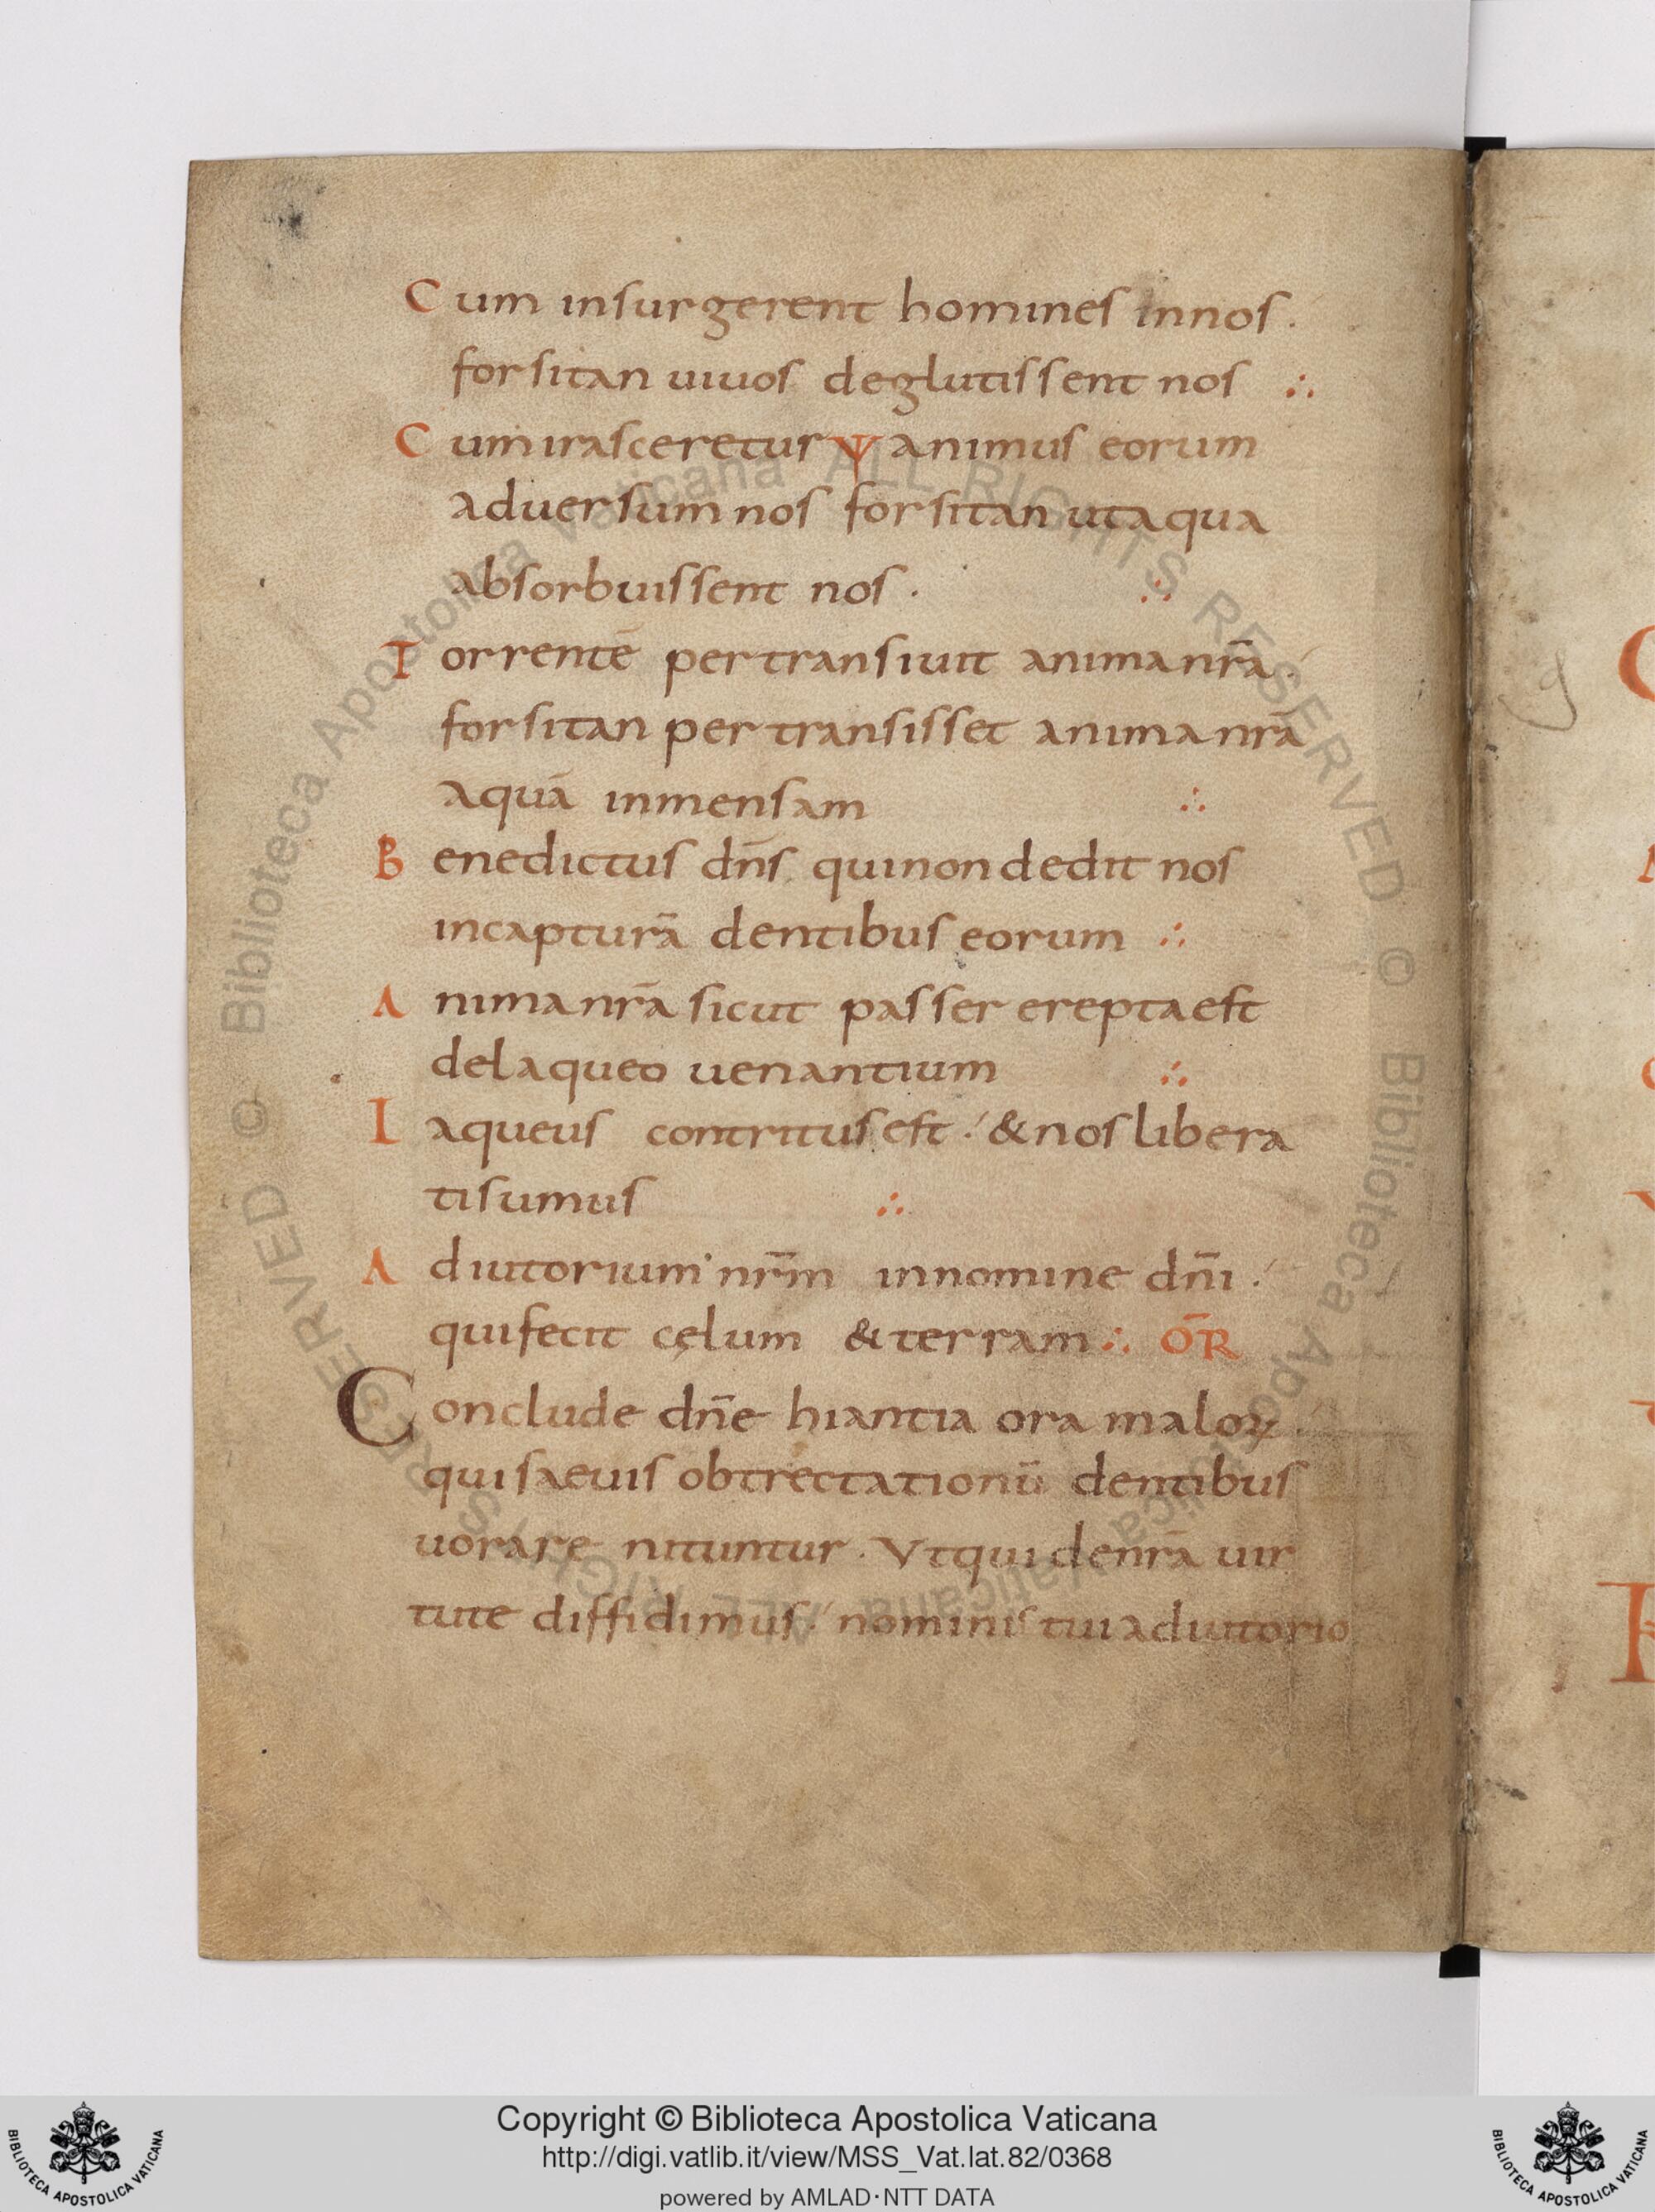 Cum insurgerent homines innos.
forsitan uiuos deglutissent nos ∴
Cum irasceretur Ѱ animus eorum
aduersum nos forsitan ut aqua
absorbuissent nos. ∴
Torrentē pertransiuit anima nrā.
forsitan pertransisset anima nrā
aquā inmensam ∴
Benedictus dn̄s qui non dedit nos
in capturā dentibus eorum ∴
Anima nrā sicut passer erepta est
de laqueo uenantium ∴
Laqueus contritus est. & nos libera
ti sumus ∴
Adiutorium nr̄m in nomine dn̄i.
qui fecit cęlum & terram ∴ ŌR
Conclude dn̄e hiantia ora maloꝝ.
qui saeuis obtrectationū dentibus
uorare nituntur. Vt qui de nrā uir
tute diffidimus. nominis tui adiutorio
Copyright © Biblioteca Apostolica Vaticana
http://digi.vatlib.it/view/MSS_Vat.lat.82/0368
powered by AMLAD·NTT DATA
BIBLIOTECA APOSTOLICA VATICANA
BIBLIOTECA APOSTOLICA VATICANA
© Biblioteca Apostolica Vaticana ALL RIGHTS RESERVED
© Biblioteca Apostolica Vaticana ALL RIGHTS RESERVED